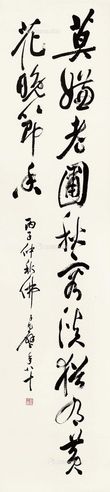 莫嫌老圃秋容淡猶有黃
花晚節香
丙子仲秋佛
年八十